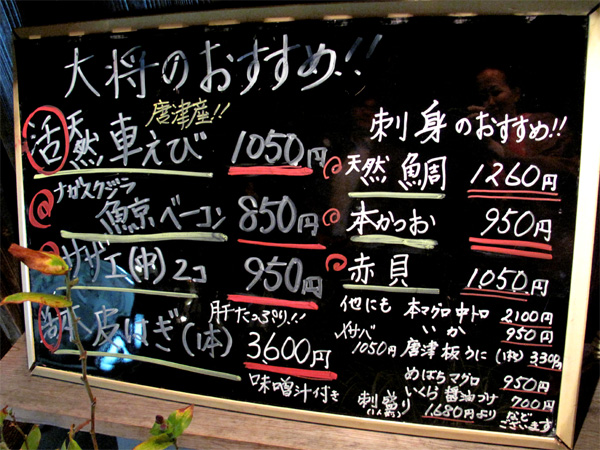 大将のおすすめ!!
唐津産!!
活 天然 車えび 1050円
ナガスクジラ
鯨ベーコン 850円
サザエ(中)2コ 950円
肝たっぷり!!
活 皮はぎ(1本) 3600円
味噌汁付き
刺身のおすすめ!!
天然 鯛 1260円
本かつお 950円
赤貝 1050円
他にも 本マグロ中トロ 2100円
いか 950円
〆サバ 1050円
唐津板うに(1枚) 3300円
めばちマグロ 950円
いくら醤油づけ 700円
刺盛り 1,680円より
などございます